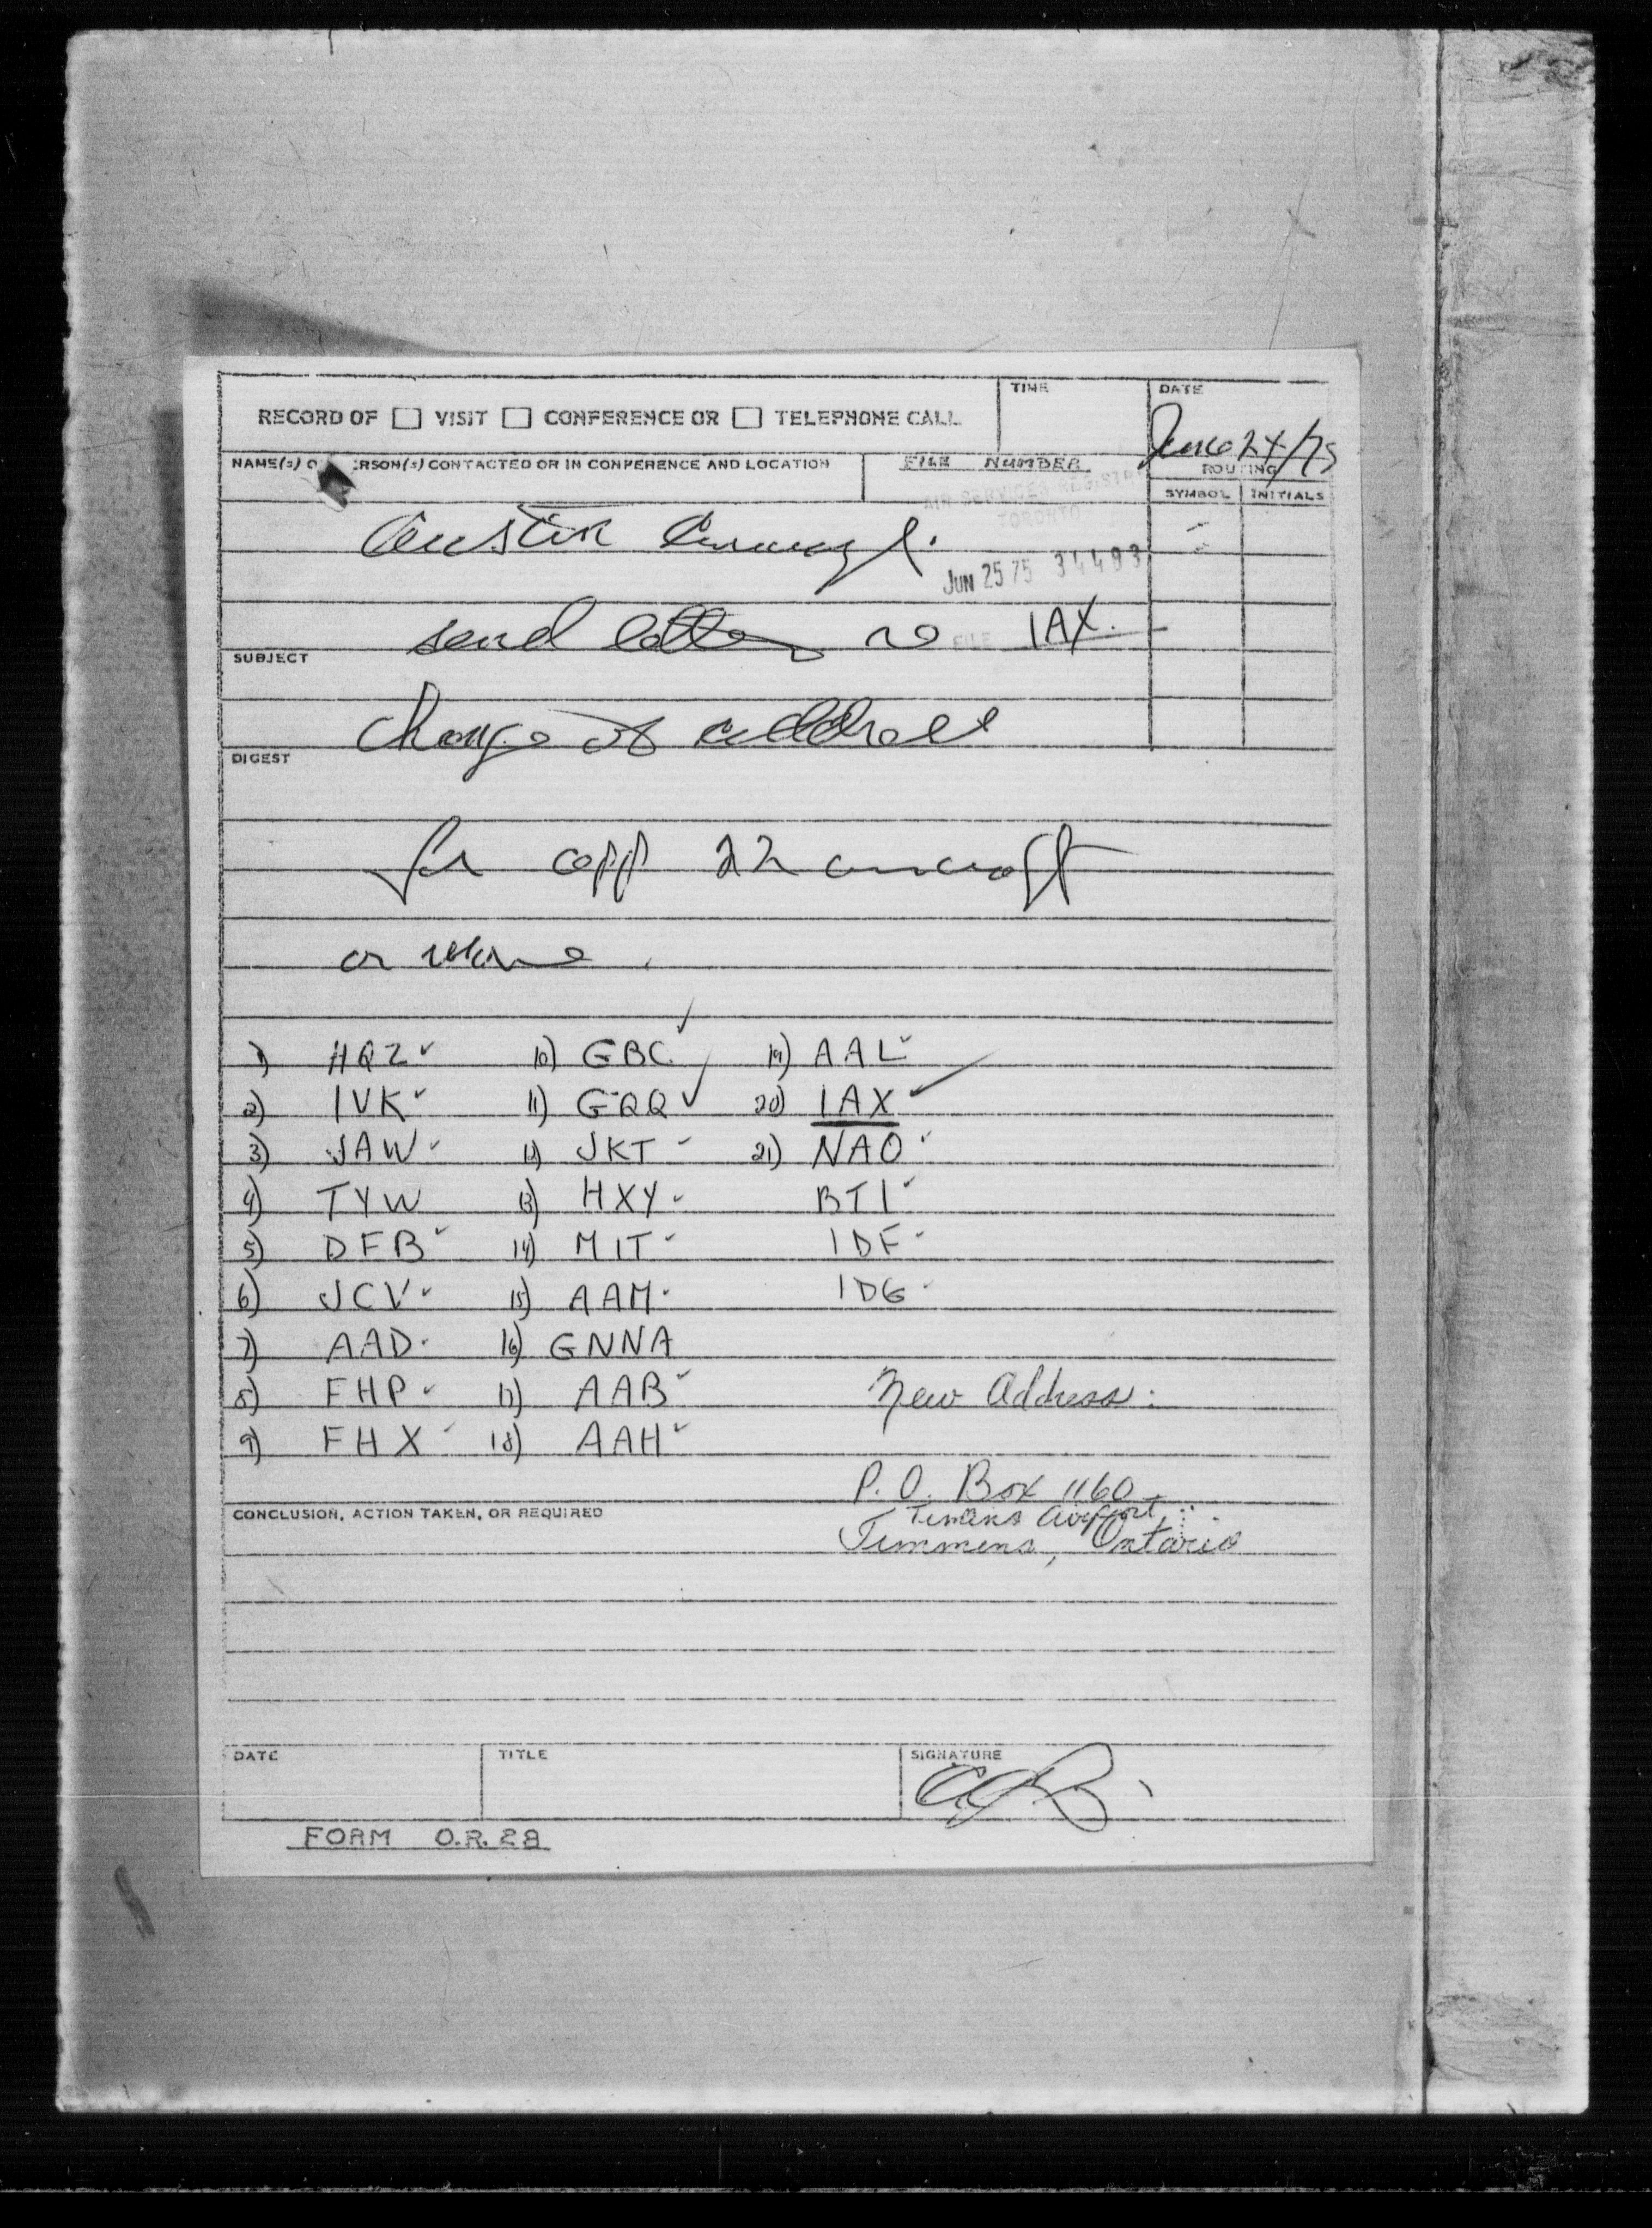 TIME
DATE
RECORD OF ☐ VISIT ☐ CONFERENCE OR ☐ TELEPHONE CALL
June 24/75
NAME(s) O ERSON(s) CONTACTED OR IN CONFERENCE AND LOCATION
FILE NUMBER
ROUTING
SYMBOL INITIALS
AIR SERVICES REG.
TORONTO
Austin
JUN 25 75 34493
send letter re FILE IAX.
SUBJECT
change of address
DIGEST
for app 22 aircraft
or
1) HQZ ✓ 10) GBC ✓ 19) AAL ✓
2) IVK ✓ 11) GQQ ✓ 20) IAX ✓
3) JAW ✓ 12) JKT ✓ 21) NAO ✓
4) TYW 13) HXY ✓ BTI ✓
5) DFB ✓ 14) MIT ✓ IDF ✓
6) JCV ✓ 15) AAM ✓ IDG ✓
7) AAD ✓ 16) GNNA
8) FHP ✓ 17) AAB ✓ New Address:
9) FHX ✓ 18) AAH ✓
P.O. Box 1160
CONCLUSION, ACTION TAKEN, OR REQUIRED
Airport
Timmens, Ontario
DATE
TITLE
SIGNATURE
FORM O.R. 28